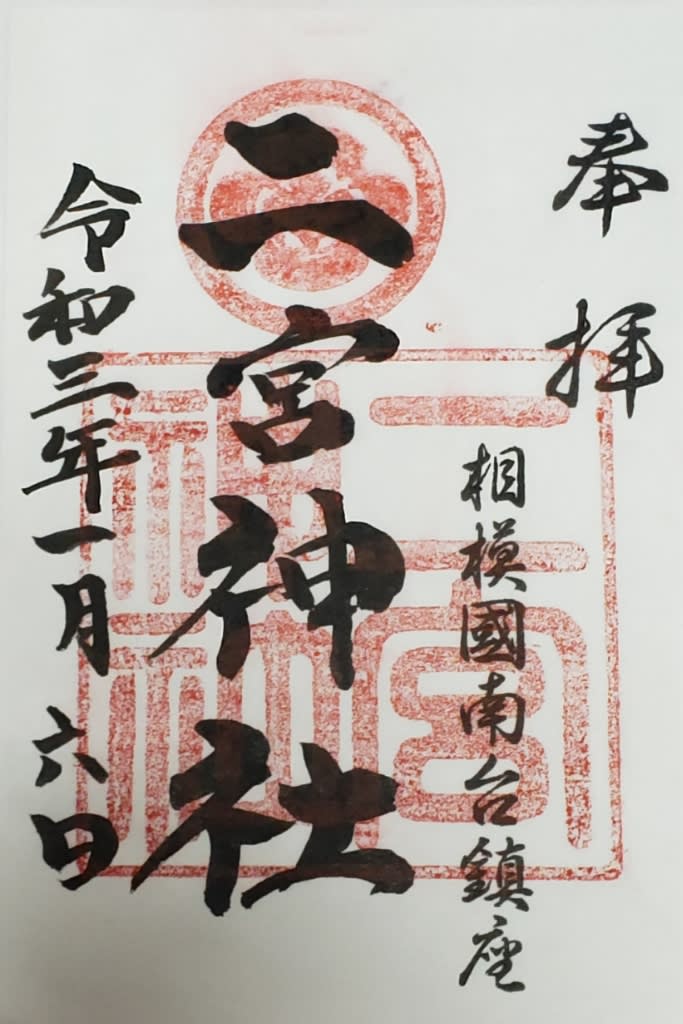 奉拝
相模國南台鎮座
二宮神社
二宮神社
令和三年一月六日